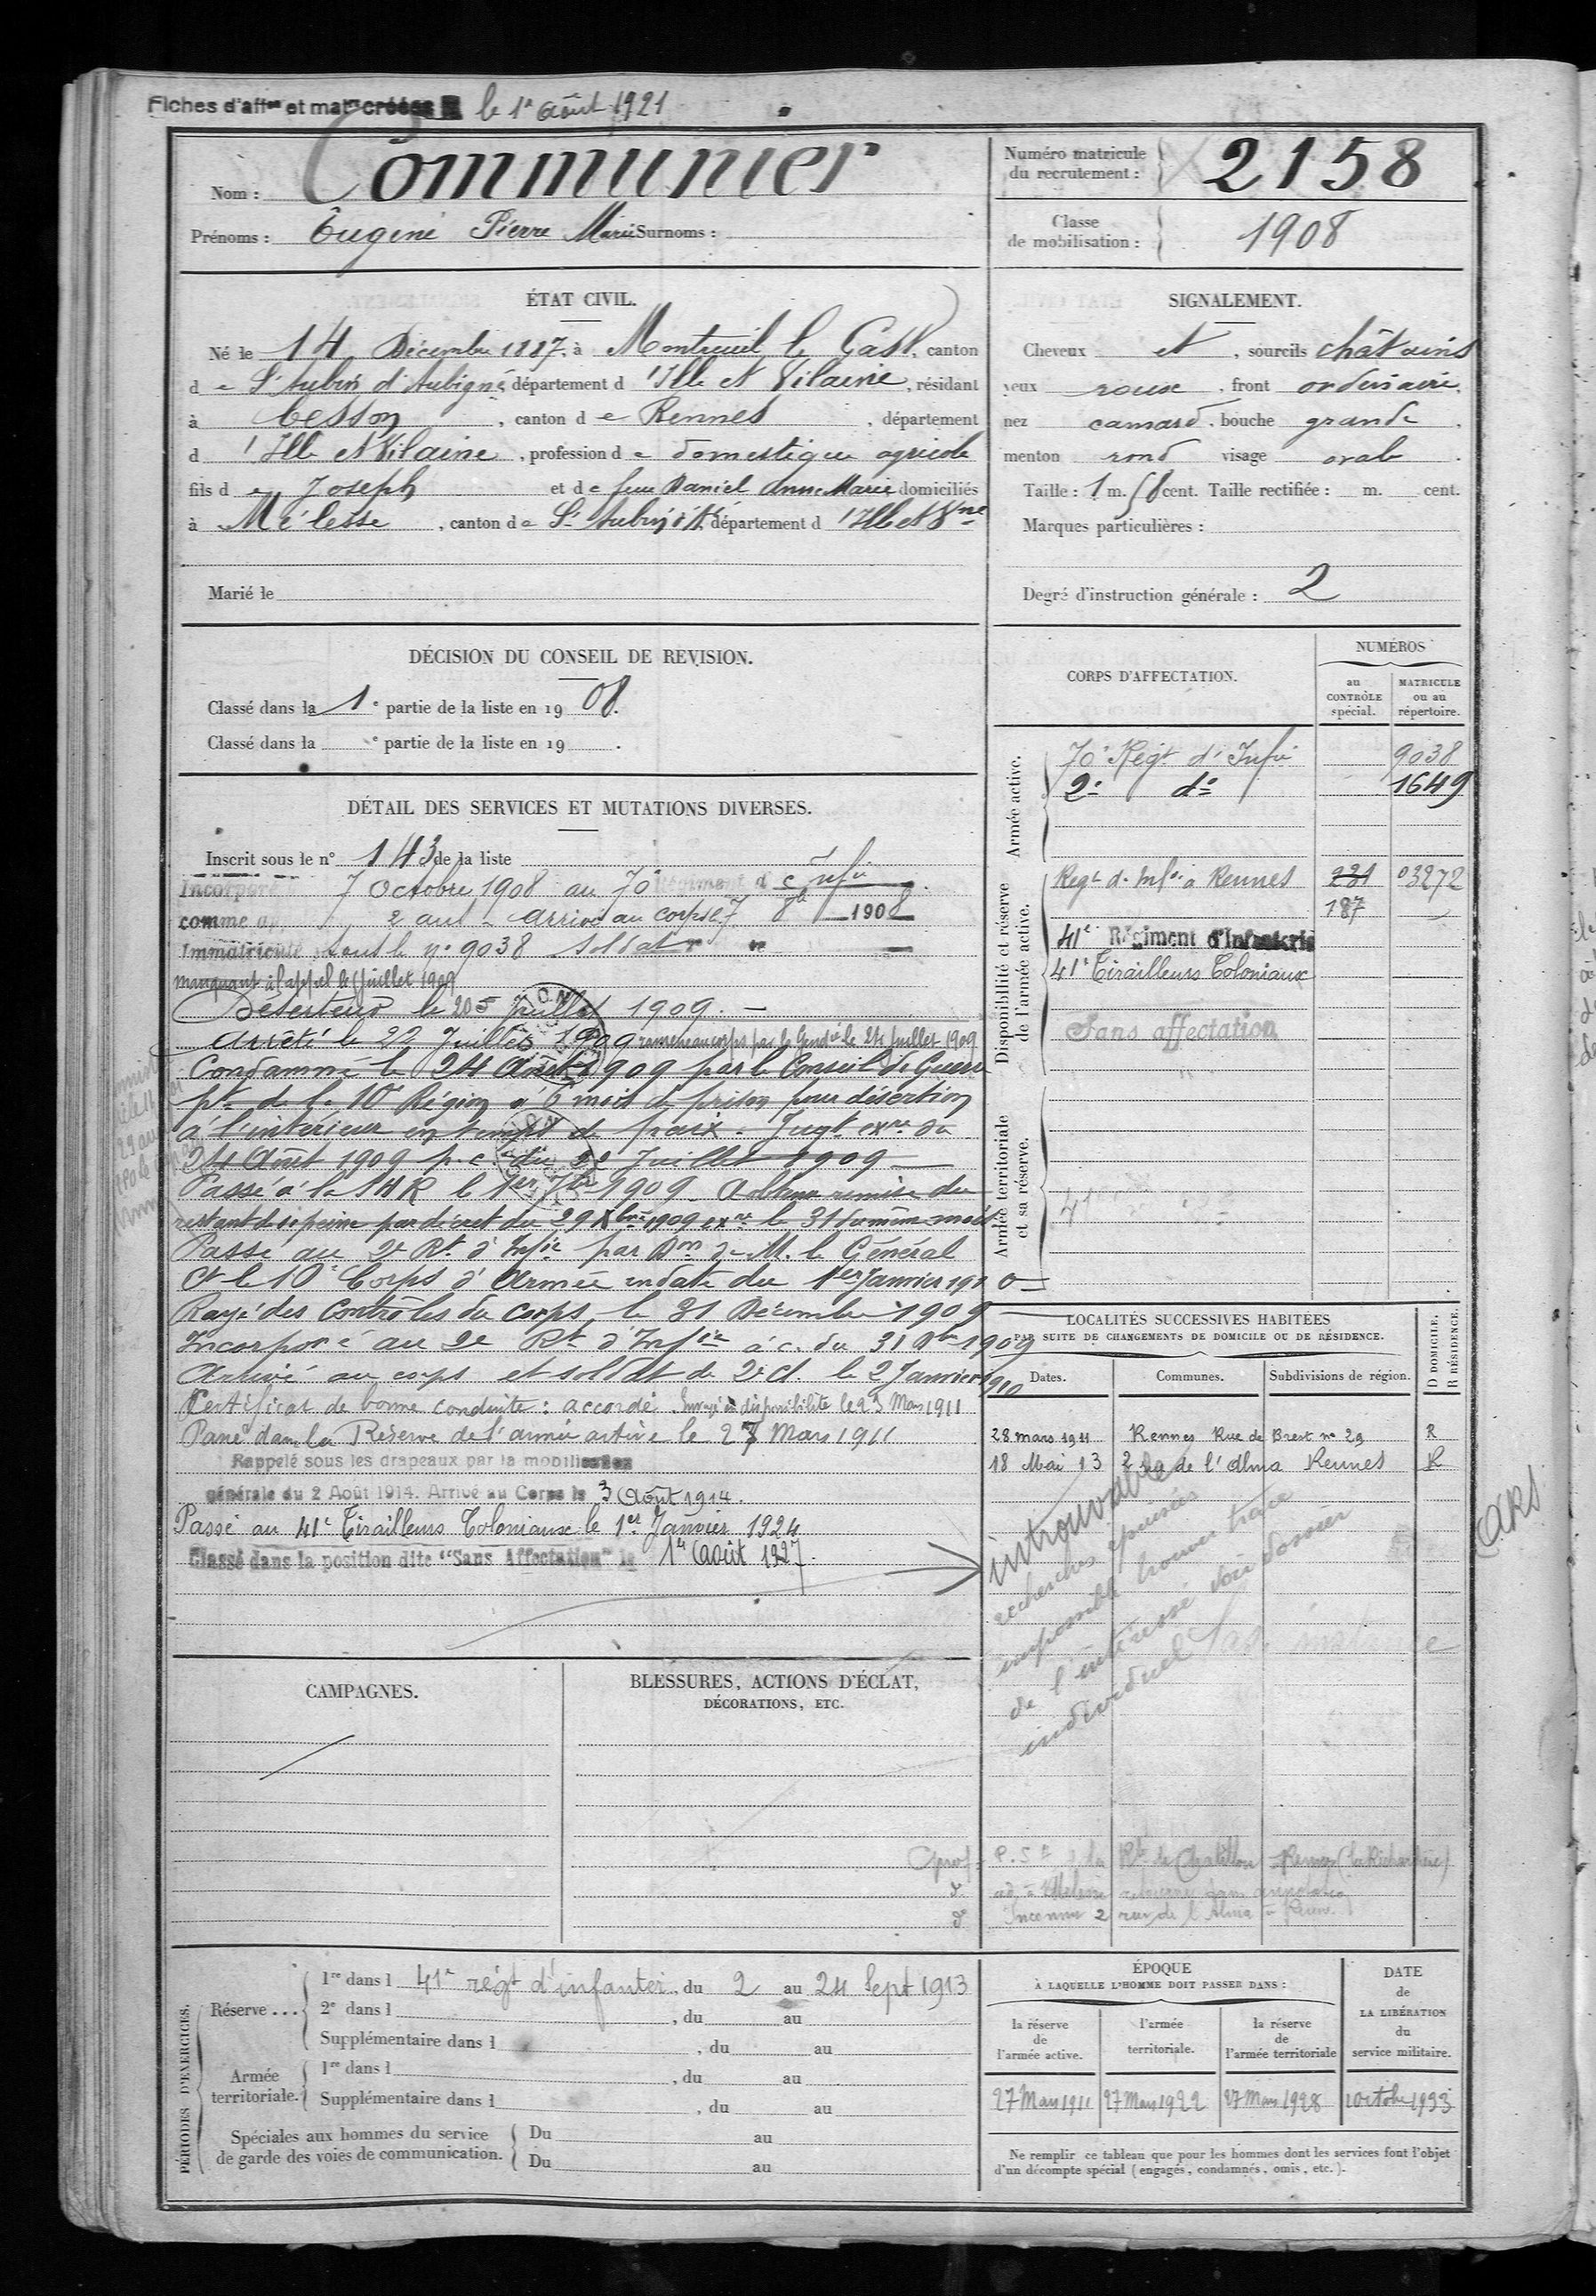 Fiches d'aff<sup>on</sup> et mat<sup>le</sup> créées le 1<sup>r</sup> août 1921
Nom : Communier
Prénoms : Eugène Pierre Marie Surnoms :
Numéro matricule du recrutement : 2158
Classe de mobilisation : 1908
ÉTAT CIVIL.
Né le 14 Décembre 1887, à Montreuil le Gast, canton
de St Aubin d'Aubigné, département d'Ille et Vilaine, résidant
à Cesson, canton de Rennes, département
d'Ille et Vilaine, profession de domestique agricole
fils de Joseph et de feue Daniel Anne Marie domiciliés
à Melesse, canton de St Aubin d'A., département d'Ille et Vne
Marié le
SIGNALEMENT.
Cheveux et, sourcils châtains
yeux roux, front ordinaire,
nez camard, bouche grande,
menton rond visage ovale.
Taille : 1 m. 58 cent. Taille rectifiée : m. cent.
Marques particulières :
Degré d'instruction générale : 2
DÉCISION DU CONSEIL DE REVISION.
Classé dans la 1<sup>e</sup> partie de la liste en 1908.
Classé dans la <sup>e</sup> partie de la liste en 19 .
DÉTAIL DES SERVICES ET MUTATIONS DIVERSES.
Inscrit sous le n° 143 de la liste
Incorporé 7 Octobre 1908 au 70<sup>e</sup> Régiment d'Infie
comme 2 ans - arrivé au corps le 7 8bre 1908
Immatriculé sous le n° 9038 soldat
manquant à l'appel le Juillet 1909
Déserteur le 20 Juillet 1909. —
Arrêté le 22 Juillet 1909 ramené au corps par la Gendie le 24 Juillet 1909
Condamné le 24 Août 1909 par le Conseil de Guerre
pt de la 10<sup>e</sup> Région à 6 mois de prison pour désertion
à l'intérieur en temps de paix. Jugt exre du
24 Août 1909 p. c. du 22 Juillet 1909
Passé à la 14 R le 1er 7bre 1909. A obtenu remise du
restant de sa peine par décret du 29 Xbre 1909 exre le 31 du même mois
Passé au 2e Rt d'Infie par Don de M. le Général
Ct le 10<sup>e</sup> Corps d'Armée en date du 1er Janvier 1910
Rayé des Contrôles du corps le 31 Décembre 1909
Incorporé au 2e Rt d'Infie à c. du 31 Xbre 1909
Arrivé au corps et soldat de 2e cl. le 2 Janvier 1910
Certificat de bonne conduite : accordé. Envoyé en disponibilité le 23 Mars 1911
Passé dans la Réserve de l'armée active le 27 Mars 1911
Rappelé sous les drapeaux par la mobilisation
générale du 2 Août 1914. Arrivé au Corps le 3 Août 1914.
Passé au 41<sup>e</sup> Tirailleurs Coloniaux le 1er Janvier 1924
Classé dans la position dite "Sans Affectation" le 1er Août 1927.
CORPS D'AFFECTATION.
NUMÉROS
au CONTRÔLE spécial.
MATRICULE ou au répertoire.
Armée active.
70<sup>e</sup> Régt d'Infie 9038
2<sup>e</sup> d° 1649
Disponibilité et réserve de l'armée active.
Régt d'Infie à Rennes 231 03272
187
41<sup>e</sup> Régiment d'Infanterie
41<sup>e</sup> Tirailleurs Coloniaux
Sans affectation
Armée territoriale et sa réserve.
LOCALITÉS SUCCESSIVES HABITÉES
PAR SUITE DE CHANGEMENTS DE DOMICILE OU DE RÉSIDENCE.
Dates. Communes. Subdivisions de région.
D DOMICILE. R RÉSIDENCE.
28 mars 1911 Rennes Rue de Brest n° 29 R
18 Mai 13 2 rue de l'Alma Rennes R
introuvable
recherches épuisées
impossible trouver trace
de l'intéressé voir dossier
individuel
ARS
P. S. Rte de Chatillon Rennes
Inconnu 2 rue de l'Alma à Rennes
CAMPAGNES.
BLESSURES, ACTIONS D'ÉCLAT,
DÉCORATIONS, ETC.
PÉRIODES D'EXERCICES.
Réserve ...
1<sup>re</sup> dans l 41<sup>e</sup> régt d'infanterie, du 2 au 24 Sept 1913
2<sup>e</sup> dans l , du au
Supplémentaire dans l , du au
Armée territoriale.
1<sup>re</sup> dans l , du au
Supplémentaire dans l , du au
Spéciales aux hommes du service
de garde des voies de communication.
Du au
Du au
ÉPOQUE
À LAQUELLE L'HOMME DOIT PASSER DANS :
la réserve de l'armée active.
l'armée territoriale.
la réserve de l'armée territoriale
DATE de LA LIBÉRATION du service militaire.
27 Mars 1911 27 Mars 1922 27 Mars 1928 1 octobre 1933
Ne remplir ce tableau que pour les hommes dont les services font l'objet
d'un décompte spécial (engagés, condamnés, omis, etc.).